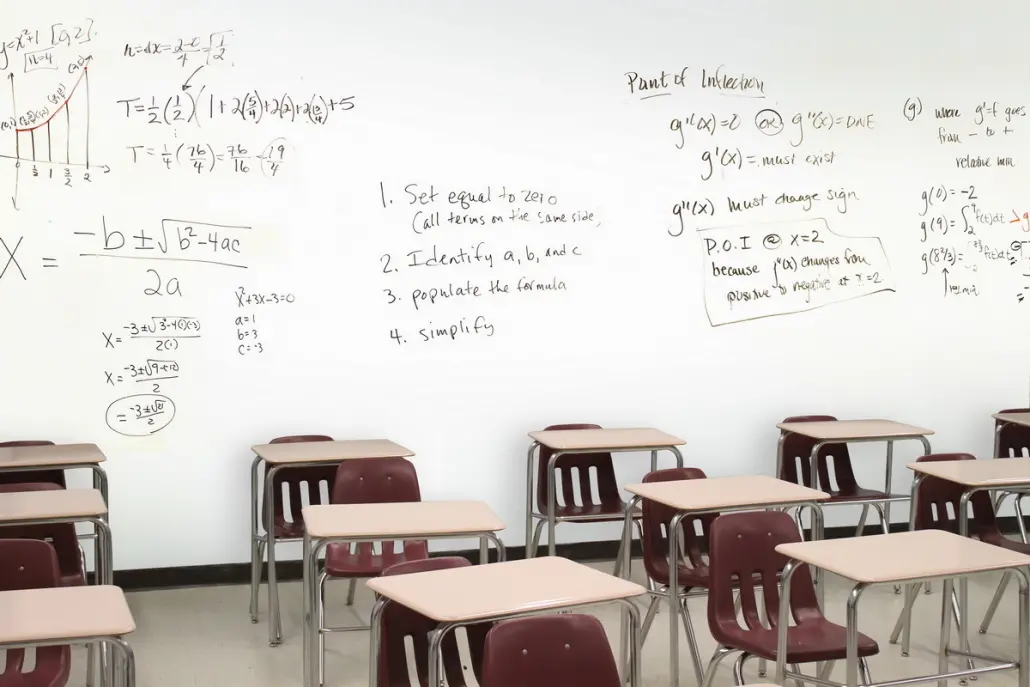 y=x²+1 [0,2].
n=4
0 1/2 1 3/2 2
n=dx=2-0/4=1/2
T=1/2(1/2)(1+2(5/4)+2(2)+2(13/4)+5
T=1/4(76/4)=76/16=19/4
X = -b±√b²-4ac / 2a
x²+3x-3=0
a=1
b=3
c=-3
X=-3±√3²-4(1)(-3) / 2(1)
X=-3±√9+12 / 2
=-3±√21 / 2
1. Set equal to zero
(all terms on the same side,
2. Identify a, b, and c
3. populate the formula
4. simplify
Point of Inflection
g''(x)=0 OR g''(x)=DNE
g'(x)= must exist
g''(x) Must change sign
P.O.I @ x=2
because g''(x) changes from
positive to negative at x=2
(g) where g'=f goes
from - to +
relative min
g(0)=-2
g(9)=∫ f(t)dt
f(t)dt
rel min